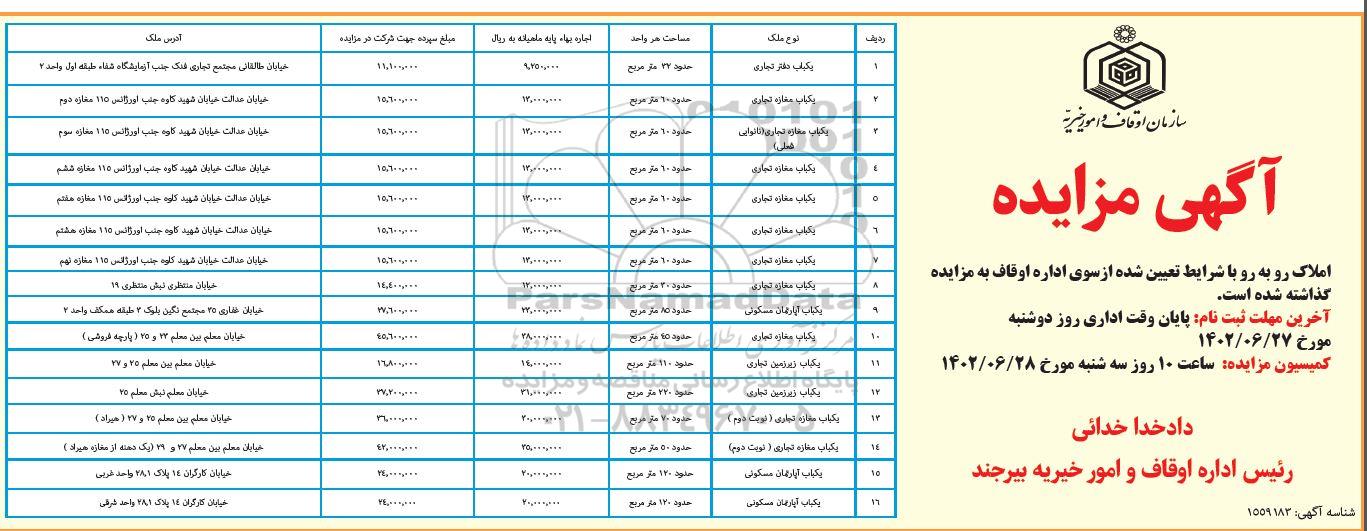 سازمان اوقاف و امور خیریه
آگهی مزایده
املاک رو به رو با شرایط تعیین شده از سوی اداره اوقاف به مزایده
گذاشته شده است.
آخرین مهلت ثبت نام: پایان وقت اداری روز دوشنبه
مورخ ۱۴۰۲/۰۶/۲۷
کمیسیون مزایده: ساعت ۱۰ روز سه شنبه مورخ ۱۴۰۲/۰۶/۲۸
دادخدا خدائی
رئیس اداره اوقاف و امور خیریه بیرجند
شناسه آگهی: ۱۵۵۹۱۸۳
ردیف نوع ملک مساحت هر واحد اجاره بهاء پایه ماهیانه به ریال مبلغ سپرده جهت شرکت در مزایده آدرس ملک
۱ یکباب دفتر تجاری حدود ۳۲ متر مربع ۹,۲۵۰,۰۰۰ ۱۱,۱۰۰,۰۰۰ خیابان طالقانی مجتمع تجاری فدک جنب آزمایشگاه شفاء طبقه اول واحد ۲
۲ یکباب مغازه تجاری حدود ۶۰ متر مربع ۱۳,۰۰۰,۰۰۰ ۱۵,۶۰۰,۰۰۰ خیابان عدالت خیابان شهید کاوه جنب اورژانس ۱۱۵ مغازه دوم
۳ یکباب مغازه تجاری(نانوایی
فعلی) حدود ۶۰ متر مربع ۱۳,۰۰۰,۰۰۰ ۱۵,۶۰۰,۰۰۰ خیابان عدالت خیابان شهید کاوه جنب اورژانس ۱۱۵ مغازه سوم
۴ یکباب مغازه تجاری حدود ۶۰ متر مربع ۱۳,۰۰۰,۰۰۰ ۱۵,۶۰۰,۰۰۰ خیابان عدالت خیابان شهید کاوه جنب اورژانس ۱۱۵ مغازه ششم
۵ یکباب مغازه تجاری حدود ۶۰ متر مربع ۱۳,۰۰۰,۰۰۰ ۱۵,۶۰۰,۰۰۰ خیابان عدالت خیابان شهید کاوه جنب اورژانس ۱۱۵ مغازه هفتم
۶ یکباب مغازه تجاری حدود ۶۰ متر مربع ۱۳,۰۰۰,۰۰۰ ۱۵,۶۰۰,۰۰۰ خیابان عدالت خیابان شهید کاوه جنب اورژانس ۱۱۵ مغازه هشتم
۷ یکباب مغازه تجاری حدود ۶۰ متر مربع ۱۳,۰۰۰,۰۰۰ ۱۵,۶۰۰,۰۰۰ خیابان عدالت خیابان شهید کاوه جنب اورژانس ۱۱۵ مغازه نهم
۸ یکباب مغازه تجاری حدود ۳۰ متر مربع ۱۲,۰۰۰,۰۰۰ ۱۴,۴۰۰,۰۰۰ خیابان منتظری نبش منتظری ۱۹
۹ یکباب آپارتمان مسکونی حدود ۸۵ متر مربع ۲۳,۰۰۰,۰۰۰ ۲۷,۶۰۰,۰۰۰ خیابان غفاری ۳۵ مجتمع نگین بلوک ۳ طبقه همکف واحد ۲
۱۰ یکباب مغازه تجاری حدود ۴۵ متر مربع ۳۸,۰۰۰,۰۰۰ ۴۵,۶۰۰,۰۰۰ خیابان معلم بین معلم ۲۳ و ۲۵ ( پارچه فروشی )
۱۱ یکباب زیرزمین تجاری حدود ۱۱۰ متر مربع ۱۴,۰۰۰,۰۰۰ ۱۶,۸۰۰,۰۰۰ خیابان معلم بین معلم ۲۵ و ۲۷
۱۲ یکباب زیرزمین تجاری حدود ۲۲۰ متر مربع ۳۱,۰۰۰,۰۰۰ ۳۷,۲۰۰,۰۰۰ خیابان معلم نبش معلم ۲۵
۱۳ یکباب مغازه تجاری ( نوبت دوم ) حدود ۷۰ متر مربع ۳۰,۰۰۰,۰۰۰ ۳۶,۰۰۰,۰۰۰ خیابان معلم بین معلم ۲۵ و ۲۷ ( هیراد )
۱۴ یکباب مغازه تجاری ( نوبت دوم) حدود ۵۰ متر مربع ۳۵,۰۰۰,۰۰۰ ۴۲,۰۰۰,۰۰۰ خیابان معلم بین معلم ۲۷ و ۲۹ (یک دهنه از مغازه هیراد )
۱۵ یکباب آپارتمان مسکونی حدود ۱۲۰ متر مربع ۲۰,۰۰۰,۰۰۰ ۲۴,۰۰۰,۰۰۰ خیابان کارگران ۱۴ پلاک ۲۸,۱ واحد غربی
۱۶ یکباب آپارتمان مسکونی حدود ۱۲۰ متر مربع ۲۰,۰۰۰,۰۰۰ ۲۴,۰۰۰,۰۰۰ خیابان کارگران ۱۴ پلاک ۲۸,۱ واحد شرقی
ParsNamadData
پایگاه اطلاع رسانی مناقصه و مزایده
۰۲۱-۸۸۳۴۹۶۷۰-۵